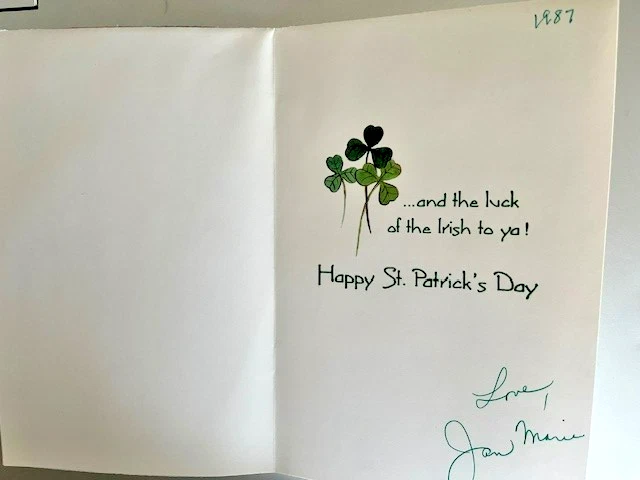 1987
...and the luck
of the Irish to ya!
Happy St. Patrick's Day
Love,
Jan Marie